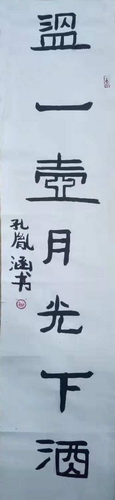 温一壶月光下酒
孔胤涵书